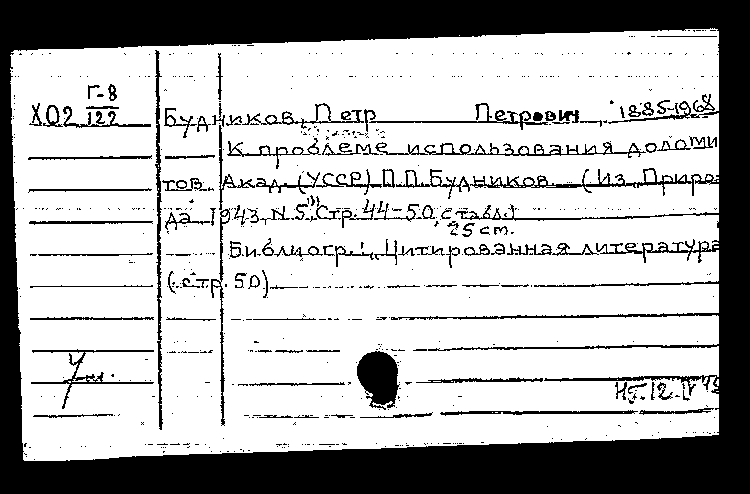 Г-8
Х02 122
Будников, Петр Петрович, 1885-1968
К проблеме использования доломи
тов. Акад. (УССР) П.П.Будников. (Из „Приро-
да" 1943, N 5, Стр. 44-50, с табл.)
25 ст.
Библиогр.: „Цитированная литература
(стр. 50)